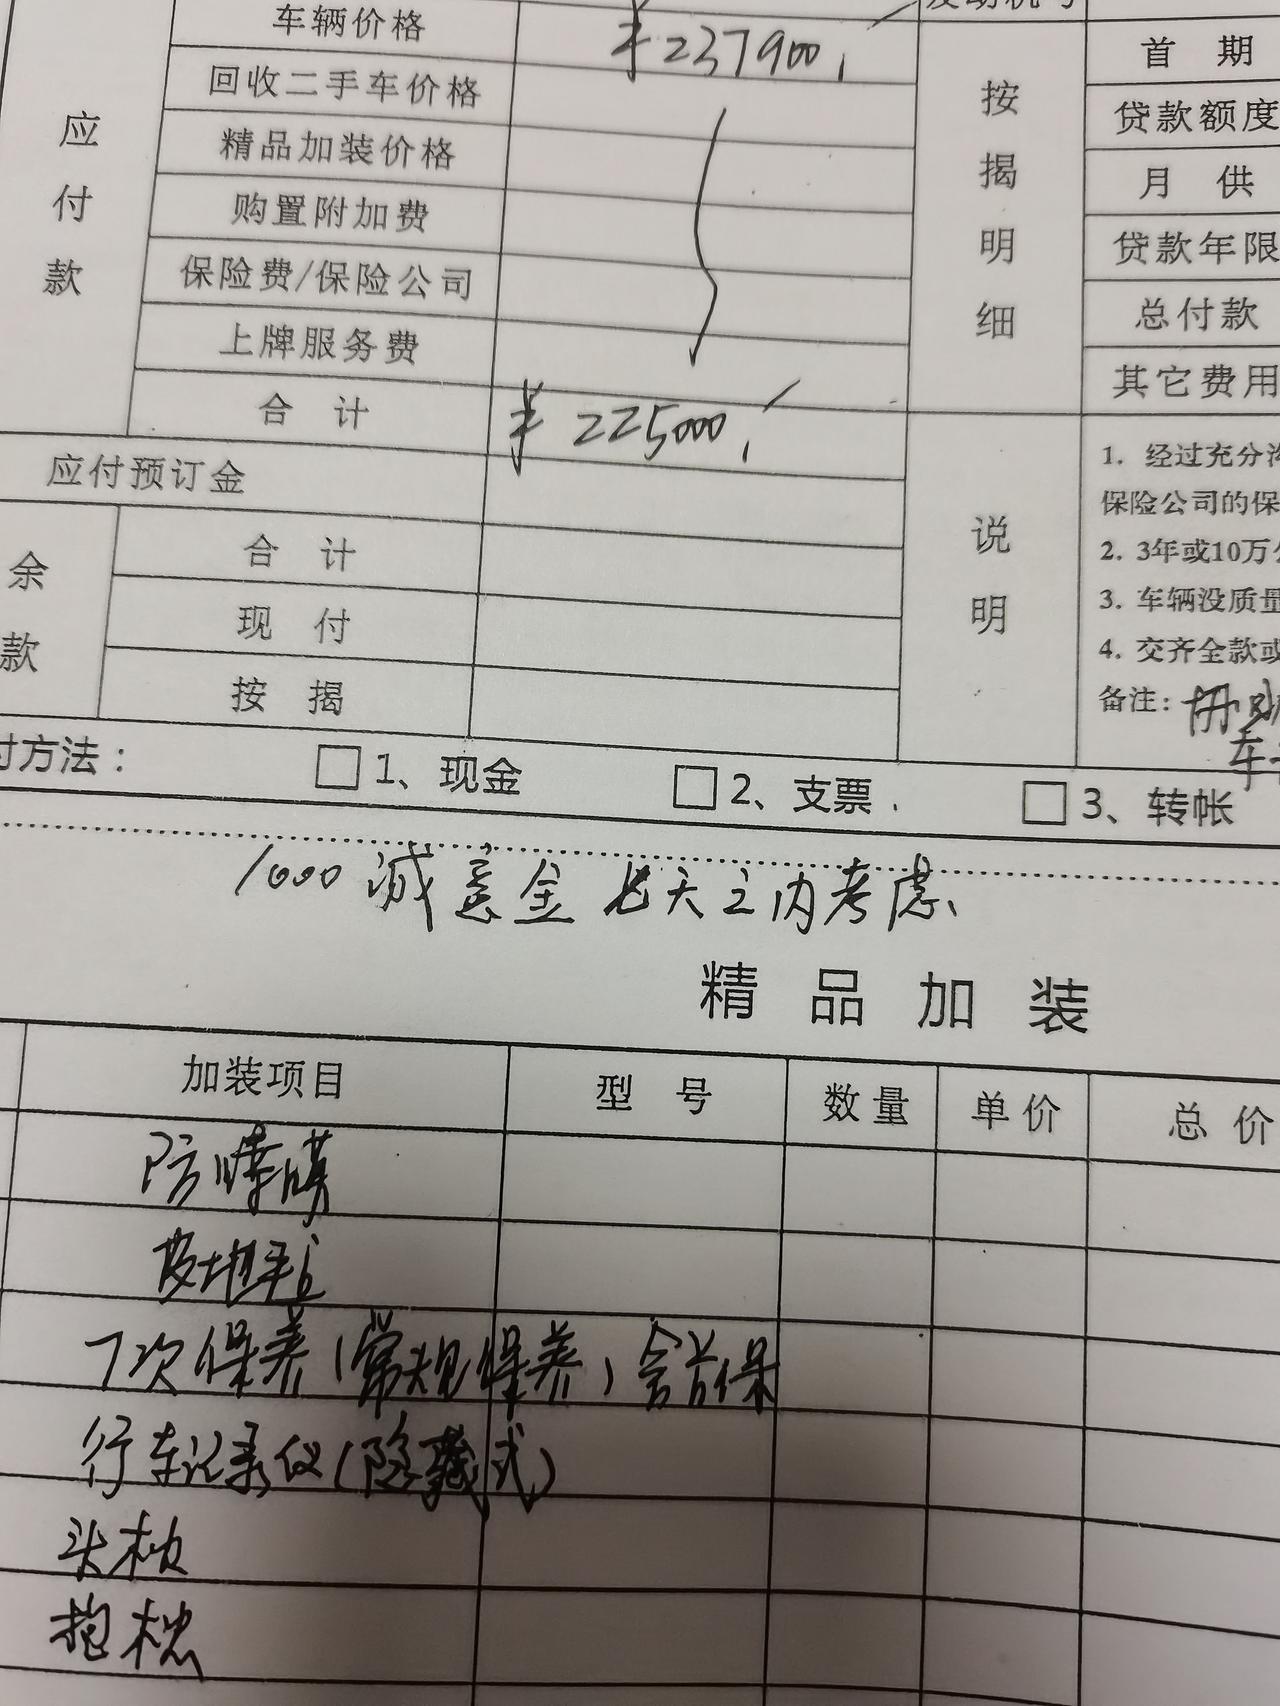 车辆价格 ¥237900
回收二手车价格
精品加装价格
购置附加费
保险费/保险公司
上牌服务费
合计 ¥225000
应付款
应付预订金
余款
合计
现付
按揭
按揭明细
首期
贷款额度
月供
贷款年限
总付款
其它费用
说明
1. 经过充分
保险公司的保
2. 3年或10万
3. 车辆没质量
4. 交齐全款或
备注:
付方法: □1、现金 □2、支票 □3、转帐
1000诚意金 七天之内考虑
精品加装
加装项目 型号 数量 单价 总价
防爆膜
皮地毯
7次保养(常规保养)含首保
行车记录仪(隐藏式)
头枕
抱枕